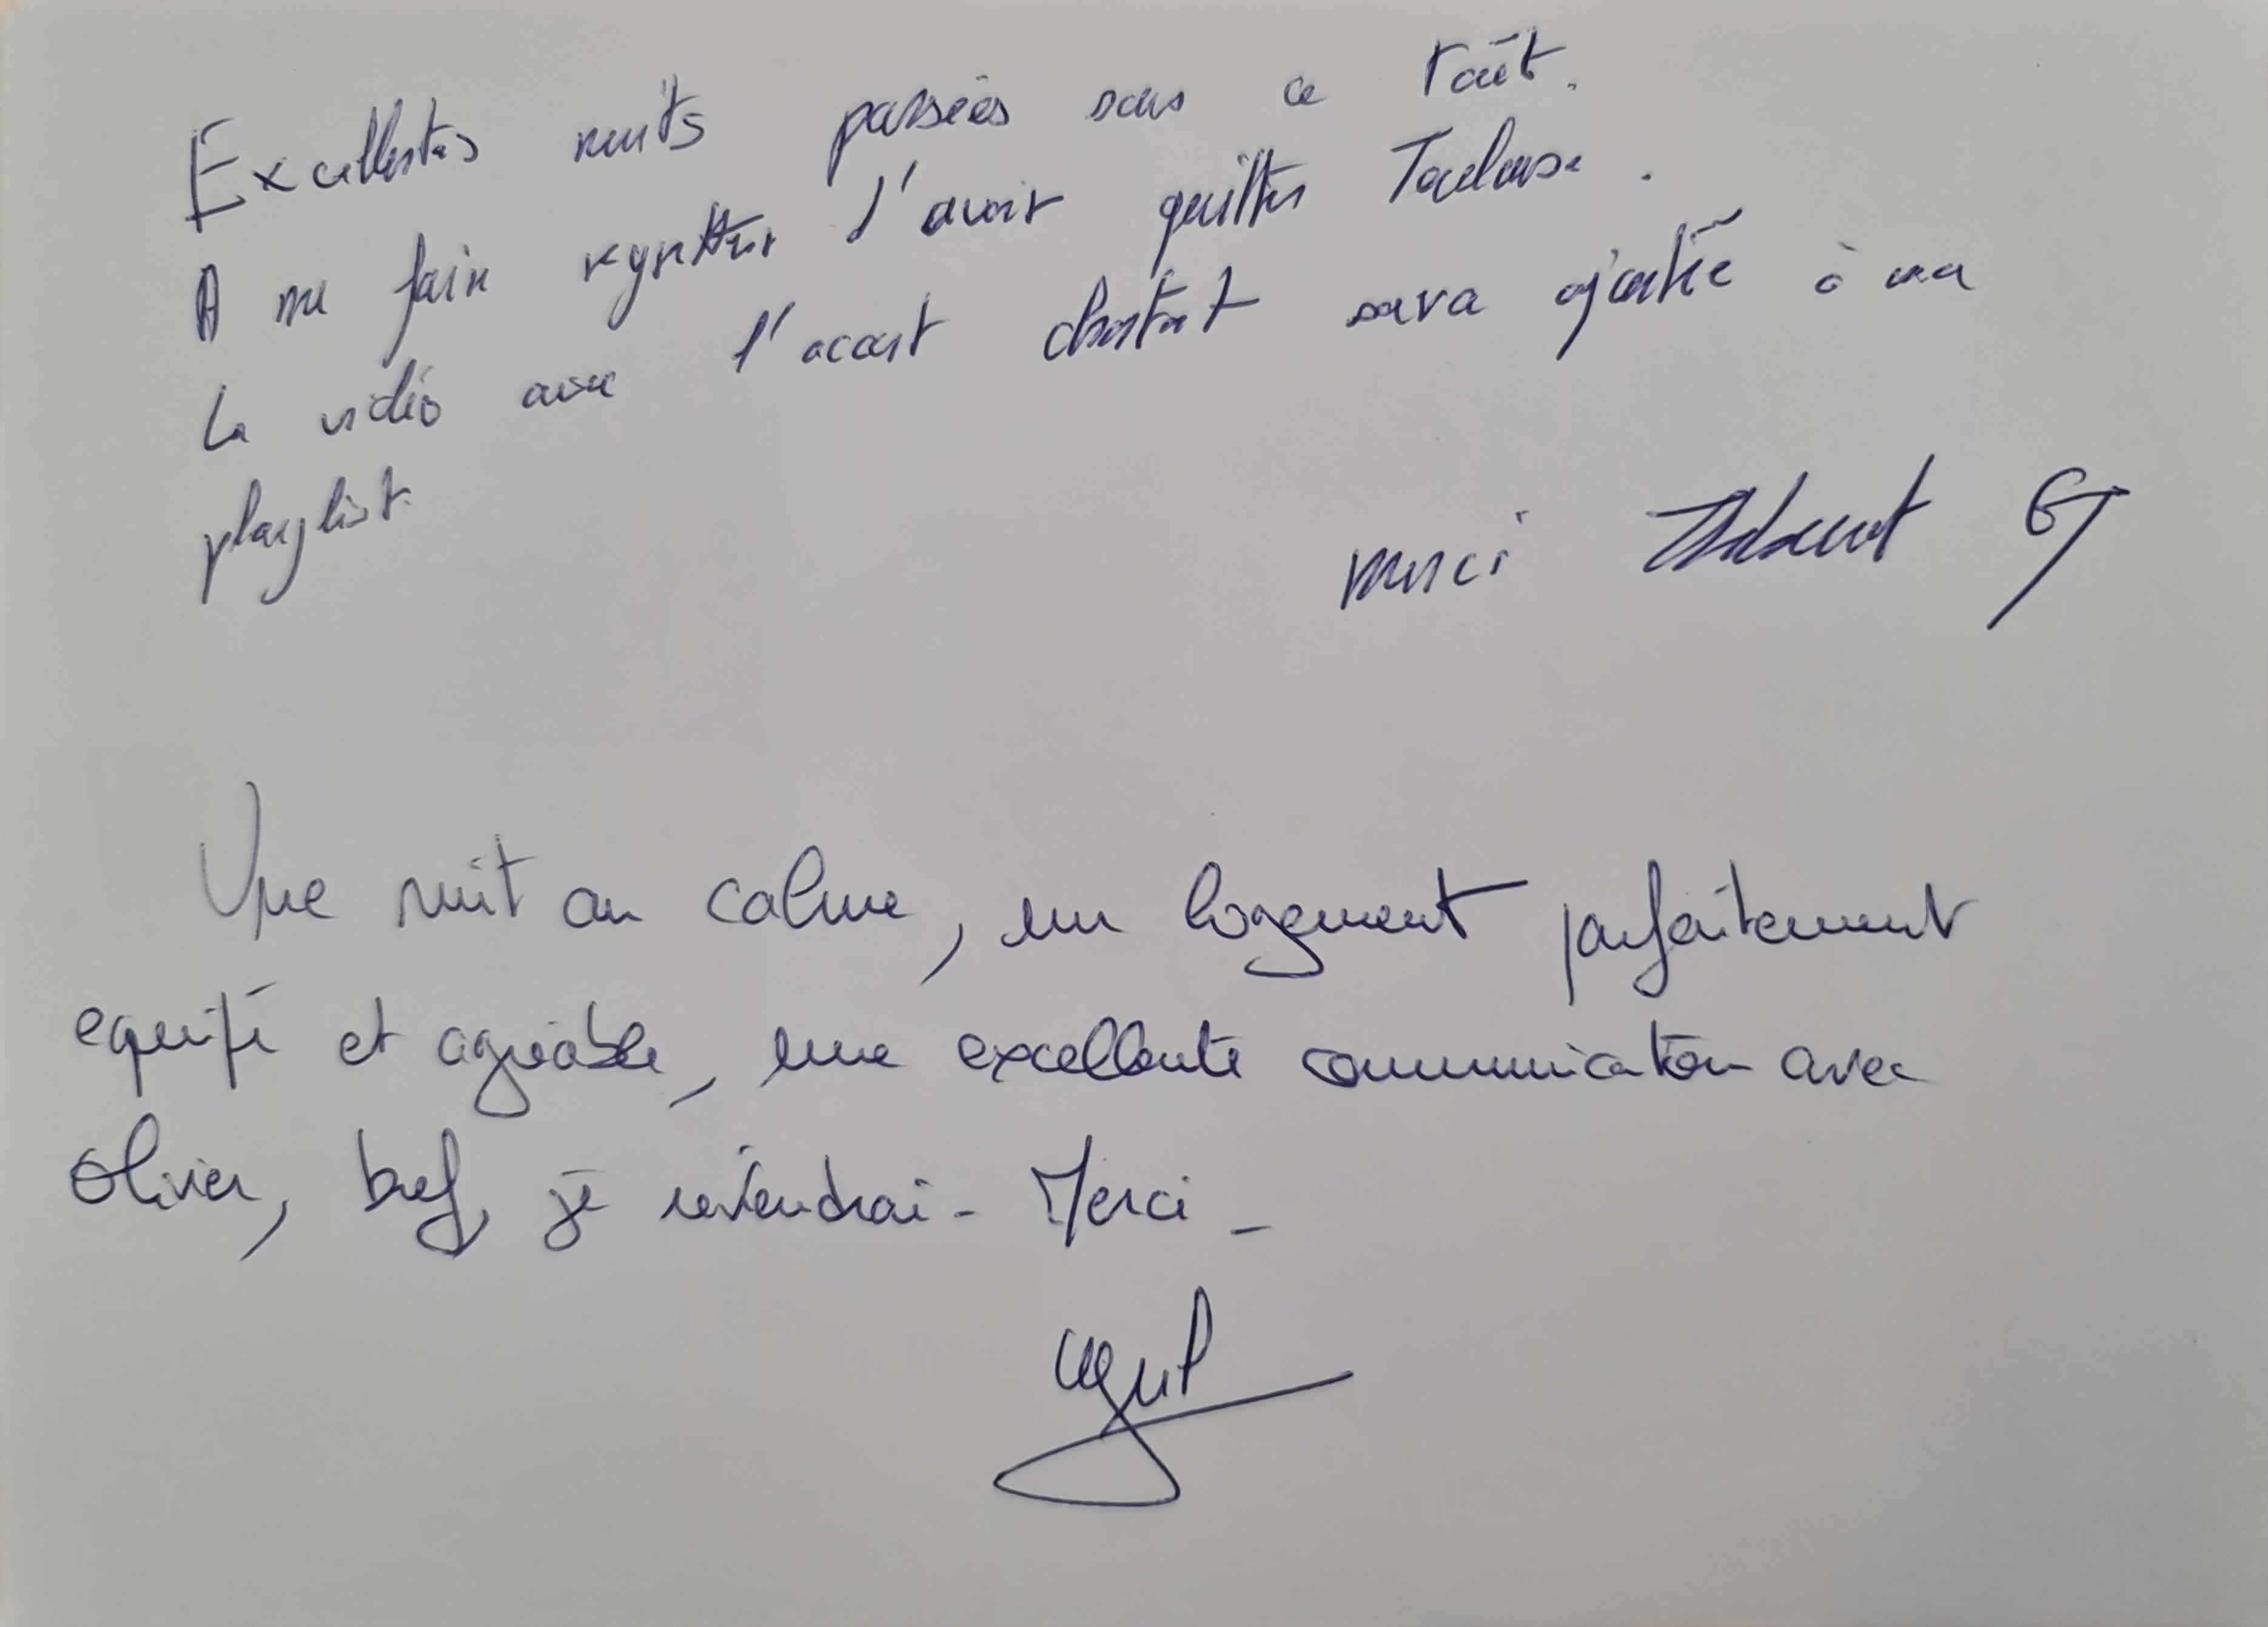 Excellentes nuits passées sous ce toît.
A me faire regretter d'avoir quitter Toulouse.
La vidéo avec l'accent chantant sera ajoutée à ma
playlist.
Merci Thibaut GT
Une nuit au calme, un logement parfaitement
equipé et agréable, une excellente communication avec
Olivier, bref, je reviendrai - Merci -